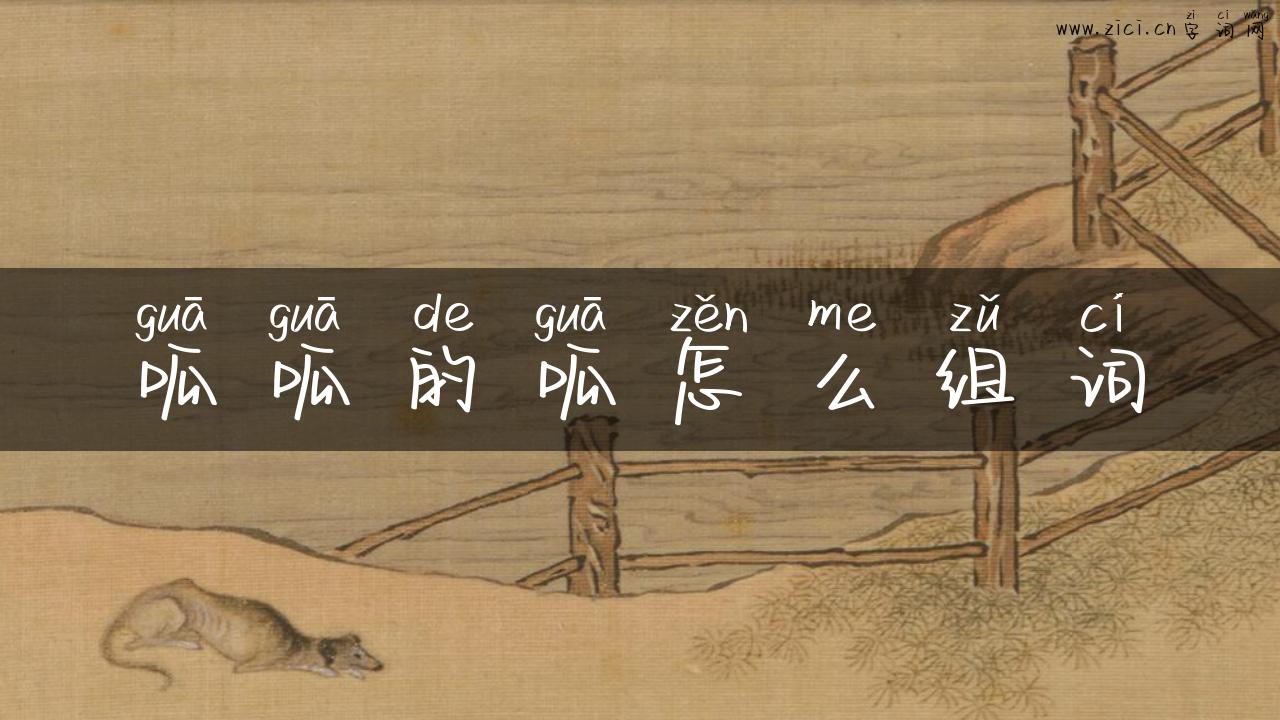 zi ci wang
www.zici.cn字词网
guā guā de guā zěn me zǔ cí
呱呱的呱怎么组词